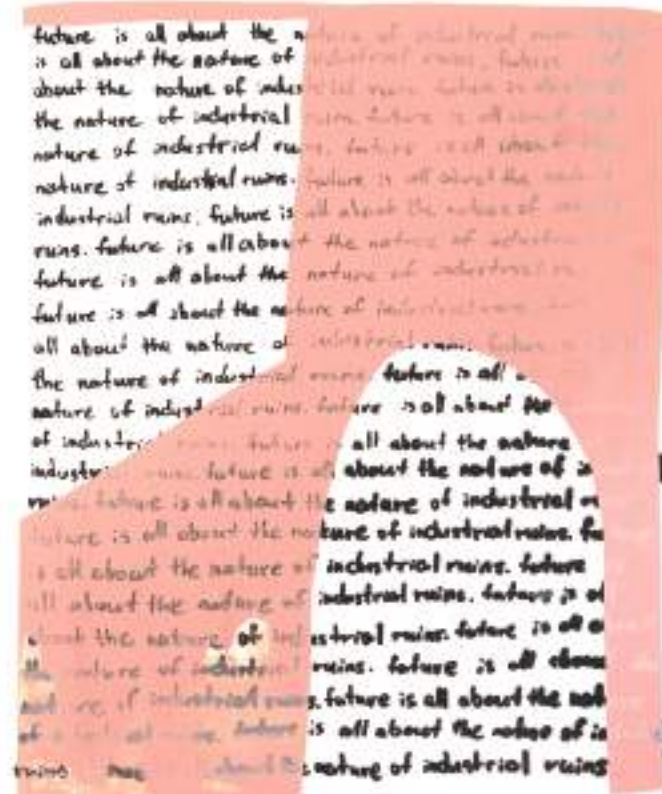 future is all about the nature of industrial ruins
is all about the nature of industrial ruins. future
about the nature of industrial ruins. future is
the nature of industrial ruins future is all about
nature of industrial ruins. future is all about the
nature of industrial ruins. future is all about the
industrial ruins. future is all about the nature of
ruins. future is all about the nature of industrial
future is all about the nature of industrial
future is all about the nature of industrial
all about the nature of industrial ruins. future
the nature of industrial ruins. future is all
nature of industrial ruins. future is all about the
of industrial ruins. future is all about the nature
industrial ruins future is all about the nature of
ruins. future is all about the nature of industrial
future is all about the nature of industrial ruins.
is all about the nature of industrial ruins. future
all about the nature of industrial ruins. future is
about the nature of industrial ruins. future is all
the nature of industrial ruins. future is all about
of industrial ruins. future is all about the
of industrial future is all about the nature of
ruins about nature of industrial ruins